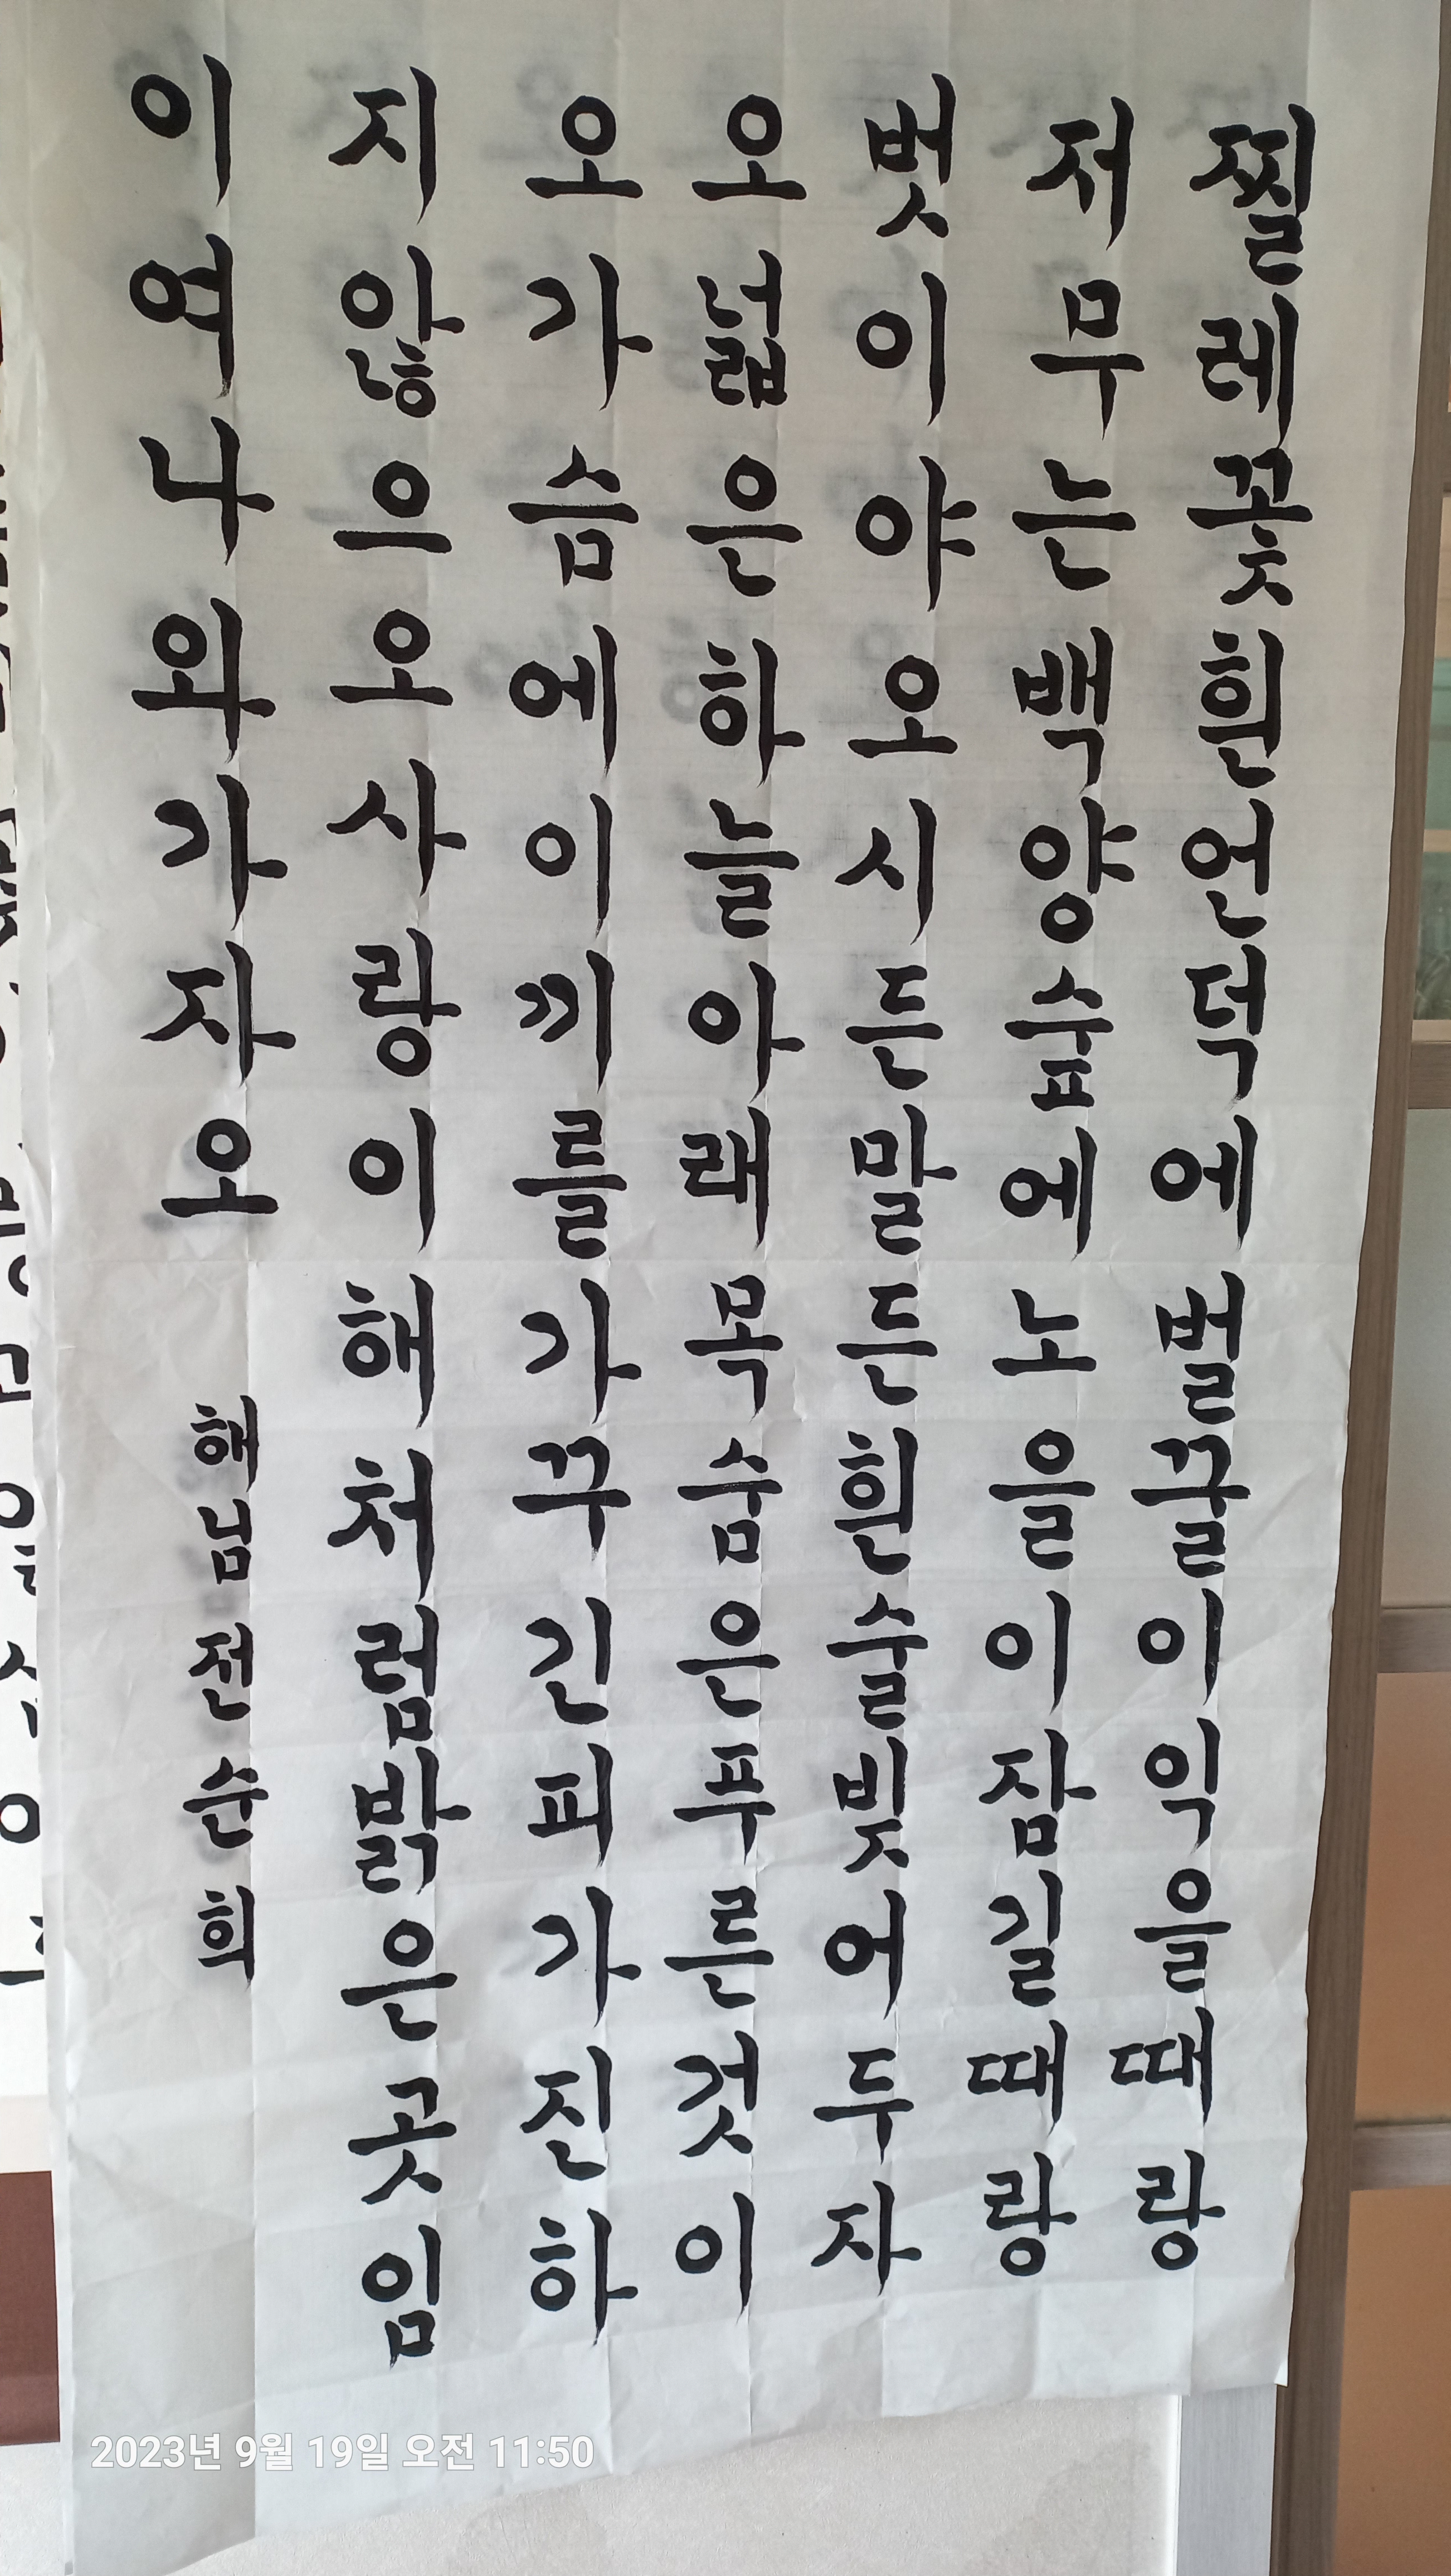 찔레꽃흰언덕에벌꿀이익을때랑
저무는백양숲에노을이잠길때랑
벗이야오시든말든흰술빚어두자
오넓은하늘아래목숨은푸른것이
오가슴에이끼를가꾸긴피가진하
지않으오사랑이해처럼밝은곳임
이여나와가자오
해님전순희
2023년 9월 19일 오전 11:50